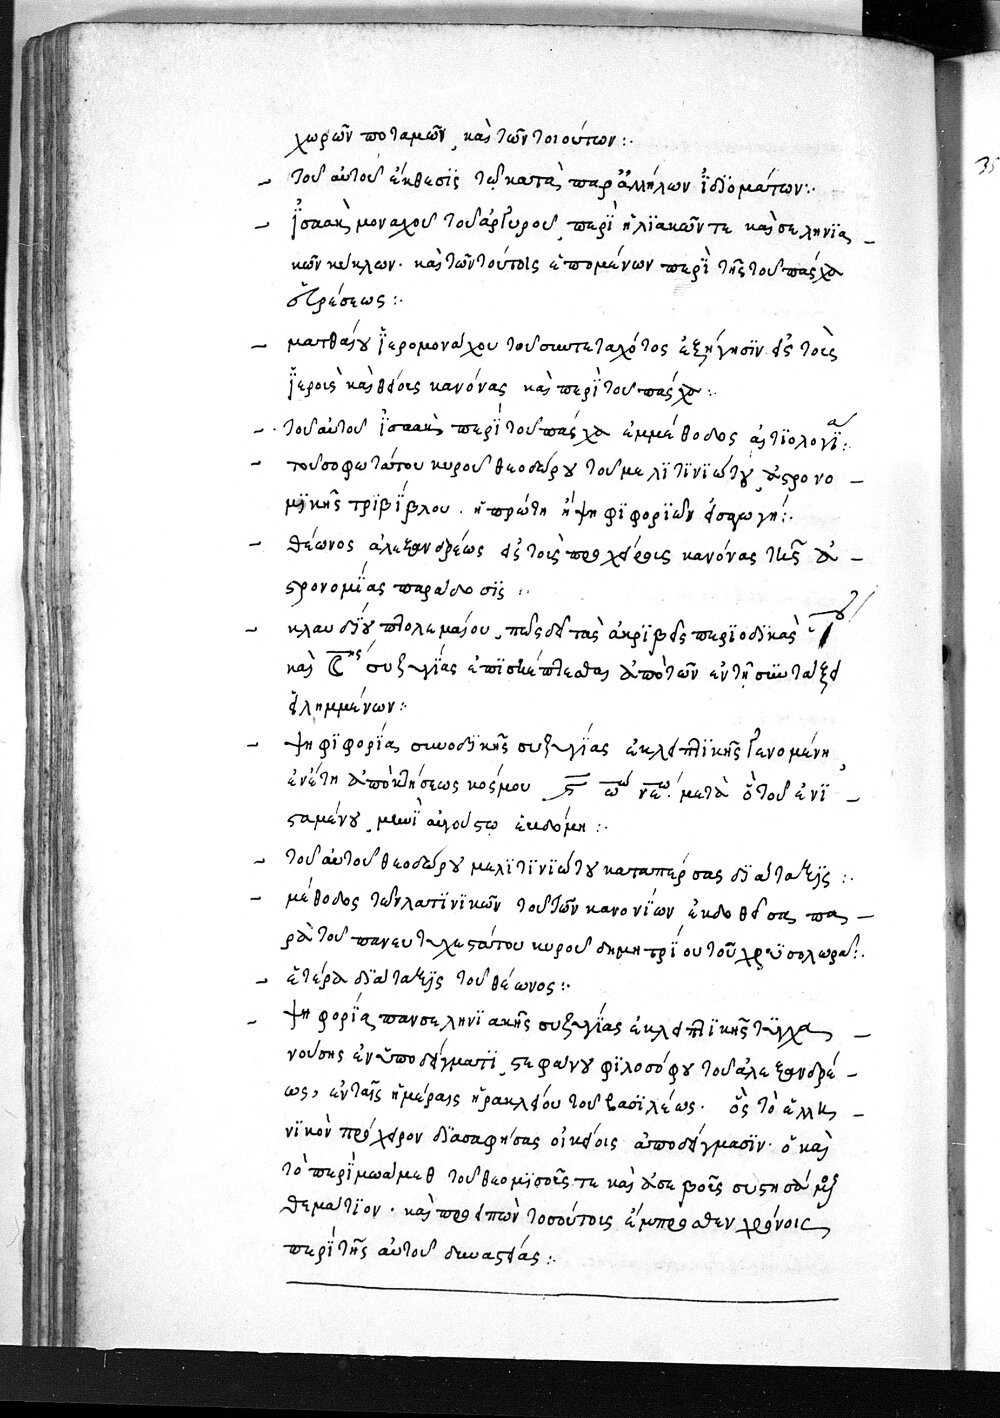 χωρῶν ποταμῶν, καὶ τῶν τοιούτων:.
– τοῦ αὐτοῦ ἔκθεσϊς τῶν κατὰ παράλλήλων ἰδϊομάτων:.
– ἰσαακ μοναχοῦ τοῦ ἀργυροῦ, περὶ ἡλϊακῶν τε καὶ σεληνϊα –
κῶν κύκλων. καὶ τῶν τούτοις ἑπομένων περὶ τῆς τοῦ πάσχα
εὑρέσεως:.
– ματθαίου ἱερομονάχου τοῦ συντεταχότος ἐξήγησϊν εἰς τοὺς
ἱεροὺς καὶ θείους κανόνας καὶ περὶ τοῦ πάσχα:.
– τοῦ αὐτοῦ ἰσαακ περὶ τοῦ πάσχα ἐμμέθοδος αἰτϊολογία:.
– τοῦ σοφωτάτου κυροῦ θεοδώρου τοῦ μελϊτϊνϊώτου, ἀστρονο –
μϊκῆς τρϊβϊβλου. ἡ πρώτη ἡ ψηφϊφορϊῶν εἰσαγωγή:.
– θέωνος ἀλεξανδρέως εἰς τοὺς προχείρους κανόνας τῆς ἀ –
στρονομϊας παράδοσϊς:.
– κλαυδϊου πτολεμαίου, πῶς δεῖ τὰς ἀκρϊβεῖς περϊοδϊκὰς
καὶ συζυγϊας ἐπϊσκέπτεσθαι ἀπὸ τῶν ἐν τῇ συντάξει
εἰλημμένων:.
– ψηφϊφορϊα συνοδϊκῆς συζυγϊας ἐκλειπτϊκῆς γενομένη,
ἐν ἔτη ἀπὸ κτήσεως κόσμου μετὰ τοῦ ἐνϊ –
σταμένου, μηνὶ αὐγούστω ἑβδόμη:.
– τοῦ αὐτοῦ θεοδώρου μελϊτϊνϊώτου κατὰ πέρσας δϊάταξϊς:.
– μέθοδος τῶν λατϊνϊκῶν τούτων κανονϊων ἐκδοθεῖσα πα –
ρὰ τοῦ πανευτυχεστάτου κυροῦ δημητρϊου τοῦ χρυσολωρα:.
– ἑτέρα δϊάταξϊς τοῦ θέωνος:.
– ψηφορϊα πανσεληνϊακῆς συζυγϊας ἐκλειπτϊκῆς τυγχα –
νούσης ἐν ὑποδείγματϊ, στεφάνου φϊλοσόφου τοῦ ἀλεξανδρέ –
ως, ἐν ταῖς ἡμέραις ἡρακλείου τοῦ βασϊλέως. ὃς τὸ ἑλλη –
νϊκὸν πρόχειρον δϊασαφήσας οἰκείοις ἀποδείγμασϊν. ὃ καὶ
τὸ περὶ μωάμεθ τοῦ θεομϊσοῦς τε καὶ ἀσεβοῦς συστησάμενος
θεμάτϊον. καὶ προειπὼν τοσούτοις ἔμπροσθεν χρόνοις
περὶ τῆς αὐτοῦ δυναστείας:.